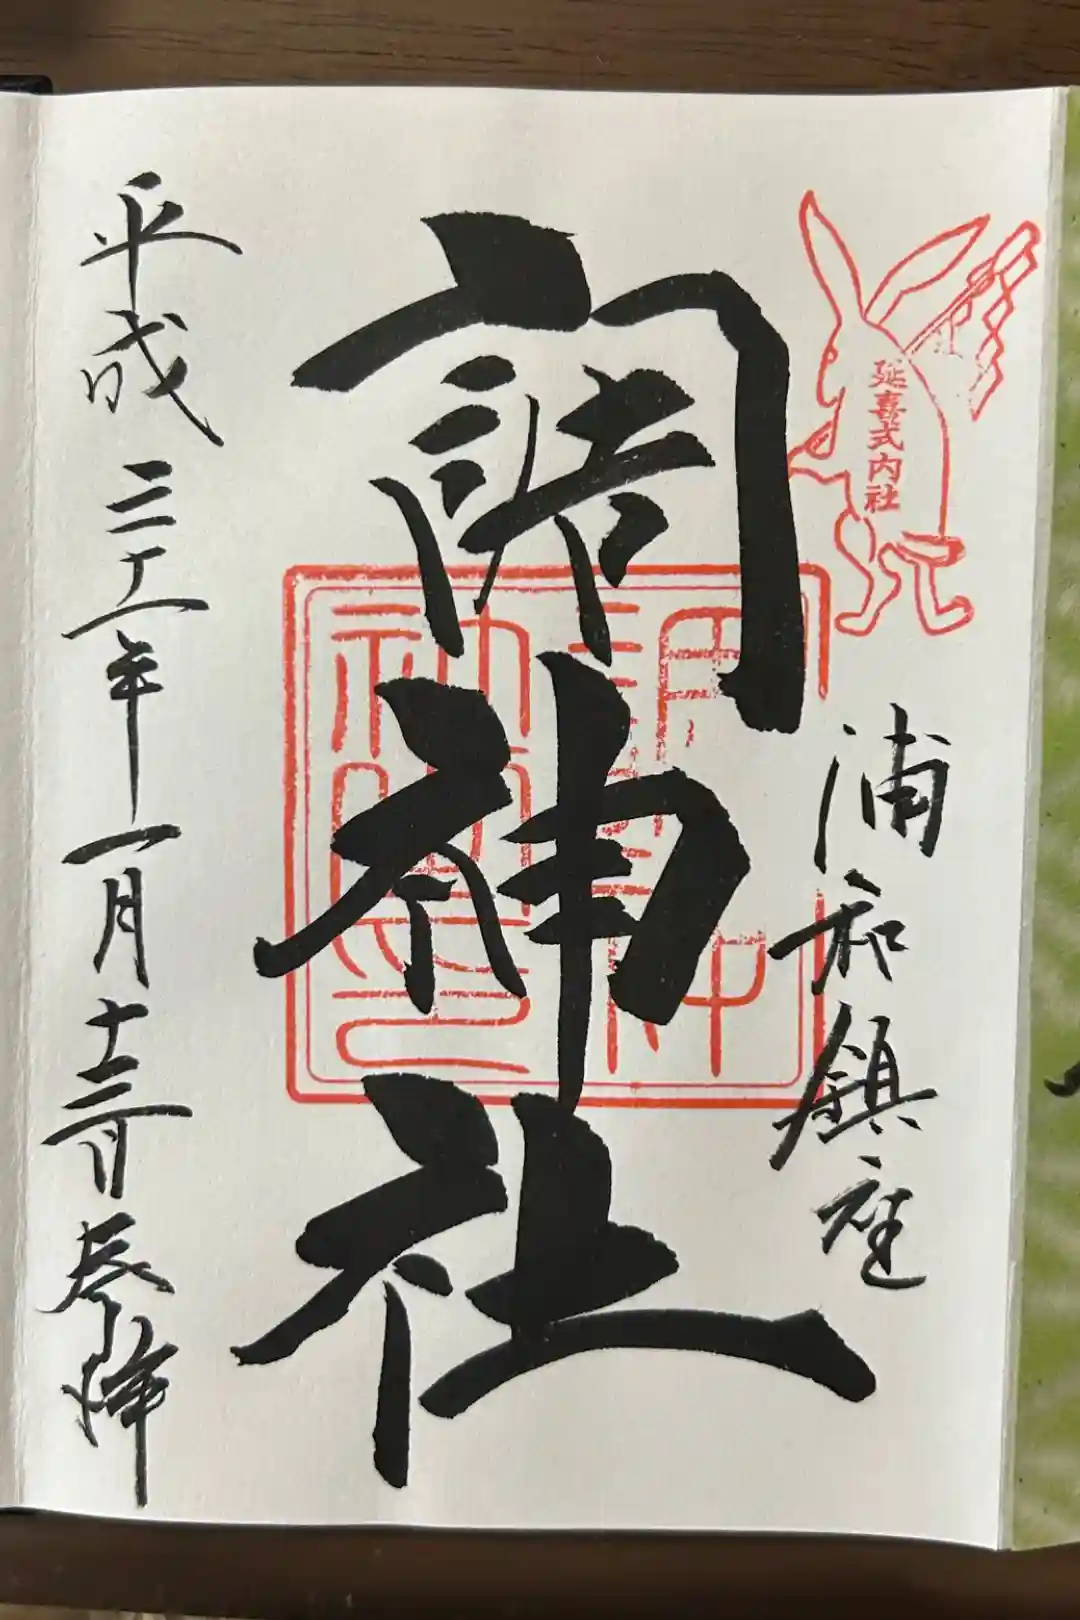 延喜式内社
浦和鎮座
調神社
平成三十一年一月十三日参拝